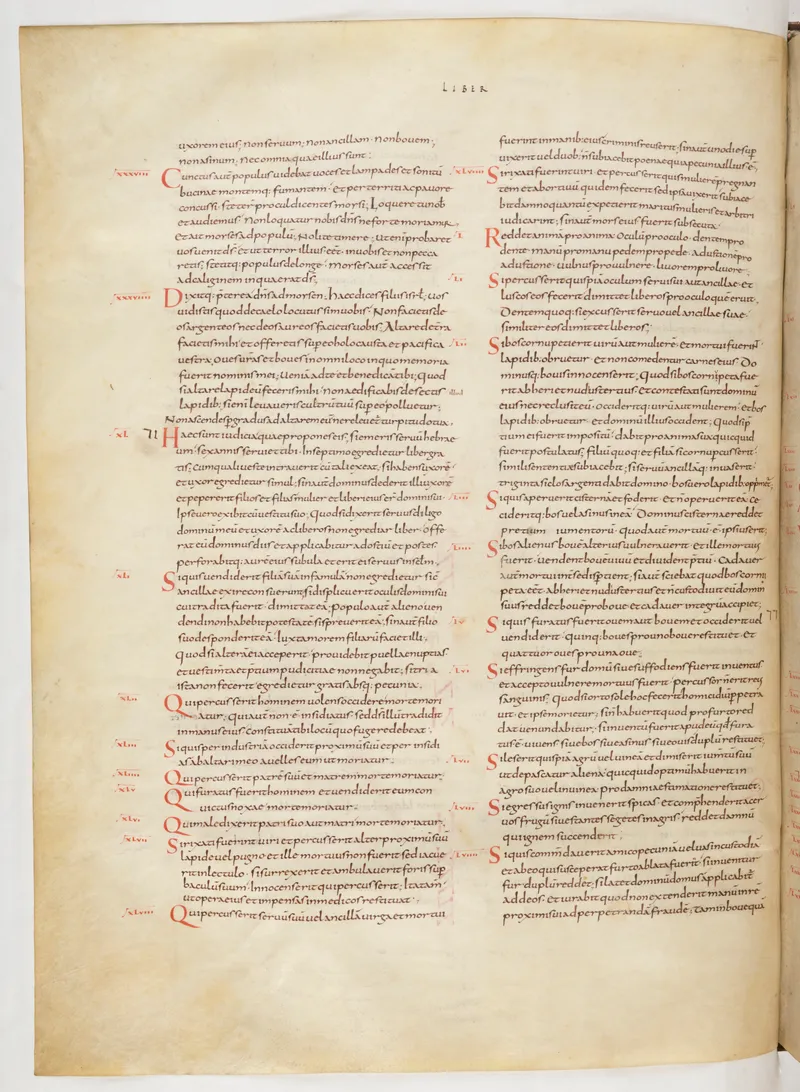 LIBER
uxorem eius; non seruum; non ancillam. non bouem;
non asinum; nec omnia quae illius sunt:
xxxviii Cunctus aut populus uidebat uoces et lampades et sonitū
bucinae montemq; fumantem. et perterriti ac pauore
concussi. steter procul dicentes moysi; Loquere tu nob
et audiemus. Non loquatur nobis dns ne forte moriamur.
et ait moyses ad populū; Nolite timere; ut enī probaret
uos uenit ds. et ut terror illius eēt in uobis et non pecca
retis; stetitq; populus de longe. moyses aut accessit
ad caliginem in qua erat ds;
xxxviiii Dixitq; pterea dns ad moysen; haec dices filiis isrl; uos
uidistis quod de caelo locutus sim uobis; Non facietis de
os argenteos nec deos aureos facietis uobis; Altare de tra
facietis mihi et offeretis sup eo holocausta et pacifica
uestra. oues uras et boues in omni loco in quo memoria
fuerit nominis mei; Ueniā ad te et benedicā tibi; Quod
si altare lapideū feceris mihi. non aedificabis de sectis
lapidib; si eni leuaueris cultrū tuū sup eo polluetur;
Non ascendes p gradus ad altare meū ne reueletur turpitudo tua;
xl Haec sunt iudicia quae propones eis; si emeris seruū hebrae
um. sex annis seruiet tibi. In septimo egredietur liber gra
tis; cum quali ueste intrauerit cū tali exeat; si habens uxorē
et uxor egredietur simul; sin aut dominus dederit illi uxorē
et pepererit filios et filias mulier et liberi eius er domini sui.
Ipse uero exibit cū uestitu suo; Quod si dixerit seruus diligo
dominū meū et uxorē ac liberos non egrediar liber. offe
rat eū dominus diis et applicabitur ad ostiū et postes.
perforabitq; aurē eius subula et erit ei seruus in sclm;
xli Si quis uendiderit filiā suā in famulā non egredietur sic
ancillae exire consuerunt; si displicuerit oculis domini sui
cui tradita fuerit. dimittat eā; Populo aut alieno uen
dendi non habebit potestatē si spreuerit eā; sin aut filio
suo desponderit eā. Iuxta morem filiarū faciet illi;
Quod si alterā ei acceperit. prouidebit puellae nuptias
et uestimta et ptium pudicitiae non negabit; si tria
ista non fecerit egredietur gratis absq; pecunia;
xlii Qui percusserit hominem uolens occidere morte mori
atur; qui aut non ē insidiatus sed ds illū tradidit
in manus eius. Constituā tibi locū quo fugere debeat;
xliii Si quis per industriā occiderit proximū suū et per insidi
as ab altari meo auelles eum ut moriatur;
xliiii Qui percusserit patrē suū et matrem morte moriatur;
xlv Qui furatus fuerit hominem et uendiderit eum con
uictus noxae morte moriatur;
xlvi Qui maledixerit patri suo aut matri morte moriatur;
xlvii Si rixati fuerint uiri et percusserit alter proximū suū
lapide uel pugno et ille mortuus non fuerit sed iacue
rit in lectulo. si surrexerit et ambulauerit foris sup
baculū suum. Innocens erit qui percusserit; Ita tam
ut operas eius et impensas in medicos restituat;
xlviii Qui percusserit seruū suū uel ancillā uirga et mortui
fuerint in manib; eius criminis reus erit. sin aut uno die sup
uixerit uel duob; n subiacebit poenae quia pecunia illius ē;
Si rixati fuerint uiri et percusserit quis mulierē pregnan
tem et abortiuū quidem fecerit sed ipsa uixerit. subiace
bit damno quantū expetierit maritus mulieris et arbitri
iudicarint; sin aut mors eius fuerit subsecuta.
Reddet anima pro anima. oculū pro oculo. dentem pro
dente. manū pro manu pedem pro pede. adustionē pro
adustione. uulnus pro uulnere. liuorem pro liuore;
Si percusserit quispiā oculum serui sui aut ancillae. et
luscos eos fecerit dimittet liberos pro oculo quē eruit;
Dentem quoq; si excusserit seruo uel ancillae suae.
similiter eos dimittet liberos;
Si bos cornu petierit uirū aut mulierē. et mortui fuerint.
lapidib; obruetur. et non comedentur carnes eius. Do
minusq; bouis innocens erit; Quod si bos cornipeta fue
rit ab heri et nudus tertius. et contestati sunt dominū
eius nec reclusit eū. occideritq; uirū aut mulierem. et bos
lapidib; obruetur. et dominū illius occident; Quod si p
tium ei fuerit impositū. dabit pro anima sua quicquid
fuerit postulatus; filiū quoq; et filiā si cornu pcusserit.
simili sententiae subiacebit; si seruū ancillāq; inuaserit.
triginta siclos argenti dabit domino. bos uero lapidib; opprimetur;
Si quis aperuerit cisternā et foderit. et n operuerit eā. ce
cideritq; bos uel asinus in eā. Dominus cisternae reddet
pretium iumentorū. quod aut mortuū ē. ipsius erit;
Si bos alienus bouē alterius uulnerauerit et ille mortuus
fuerit. uendent bouē uiuū et diuident ptiū. Cadauer
aut mortui int se disptient; sin aut sciebat quod bos corni
peta eēt ab heri et nudius tertius et n custodiuit eū domin
suus. reddet bouē pro boue. et cadauer integrū accipiet;
Si quis furatus fuerit ouem aut bouem et occiderit uel
uendiderit. quinq; boues pro uno boue restituet. et
quattuor oues pro una oue;
Si effringens fur domū siue suffodiens fuerit inuentus
et accepto uulnere mortuus fuerit. percussor n erit reus
sanguinis; Quod si orto sole hoc fecerit homicidiū ppetra
uit. et ipse morietur; si n habuerit quod pro furto red
dat uenundabitur; si inuentū fuerit apud eū qd fura
tus ē. uiuens siue bos siue asinus siue ouis duplū restituet;
Si leserit quispiā agrū uel uineā et dimiserit iumtū suū
ut depascatur aliena quicquid optimū habuerit in
agro suo uel in uinea. pro damni aestimatione restituet;
Si egressus ignis inuenerit spicas. et comphenderit acer
uos frugū siue stantes segetes in agris. reddet damnū
qui ignem succenderit;
Si quis commdauerit amico pecuniā uel uas in custodiā
et ab eo qui susceperat furto ablata fuerit. si inuenitur
fur. duplū reddet; si latet dominus domus applicabit
ad deos. et iurabit quod non extenderit manū in re
proximi sui ad perpetrandā fraudē; tam in boue quā